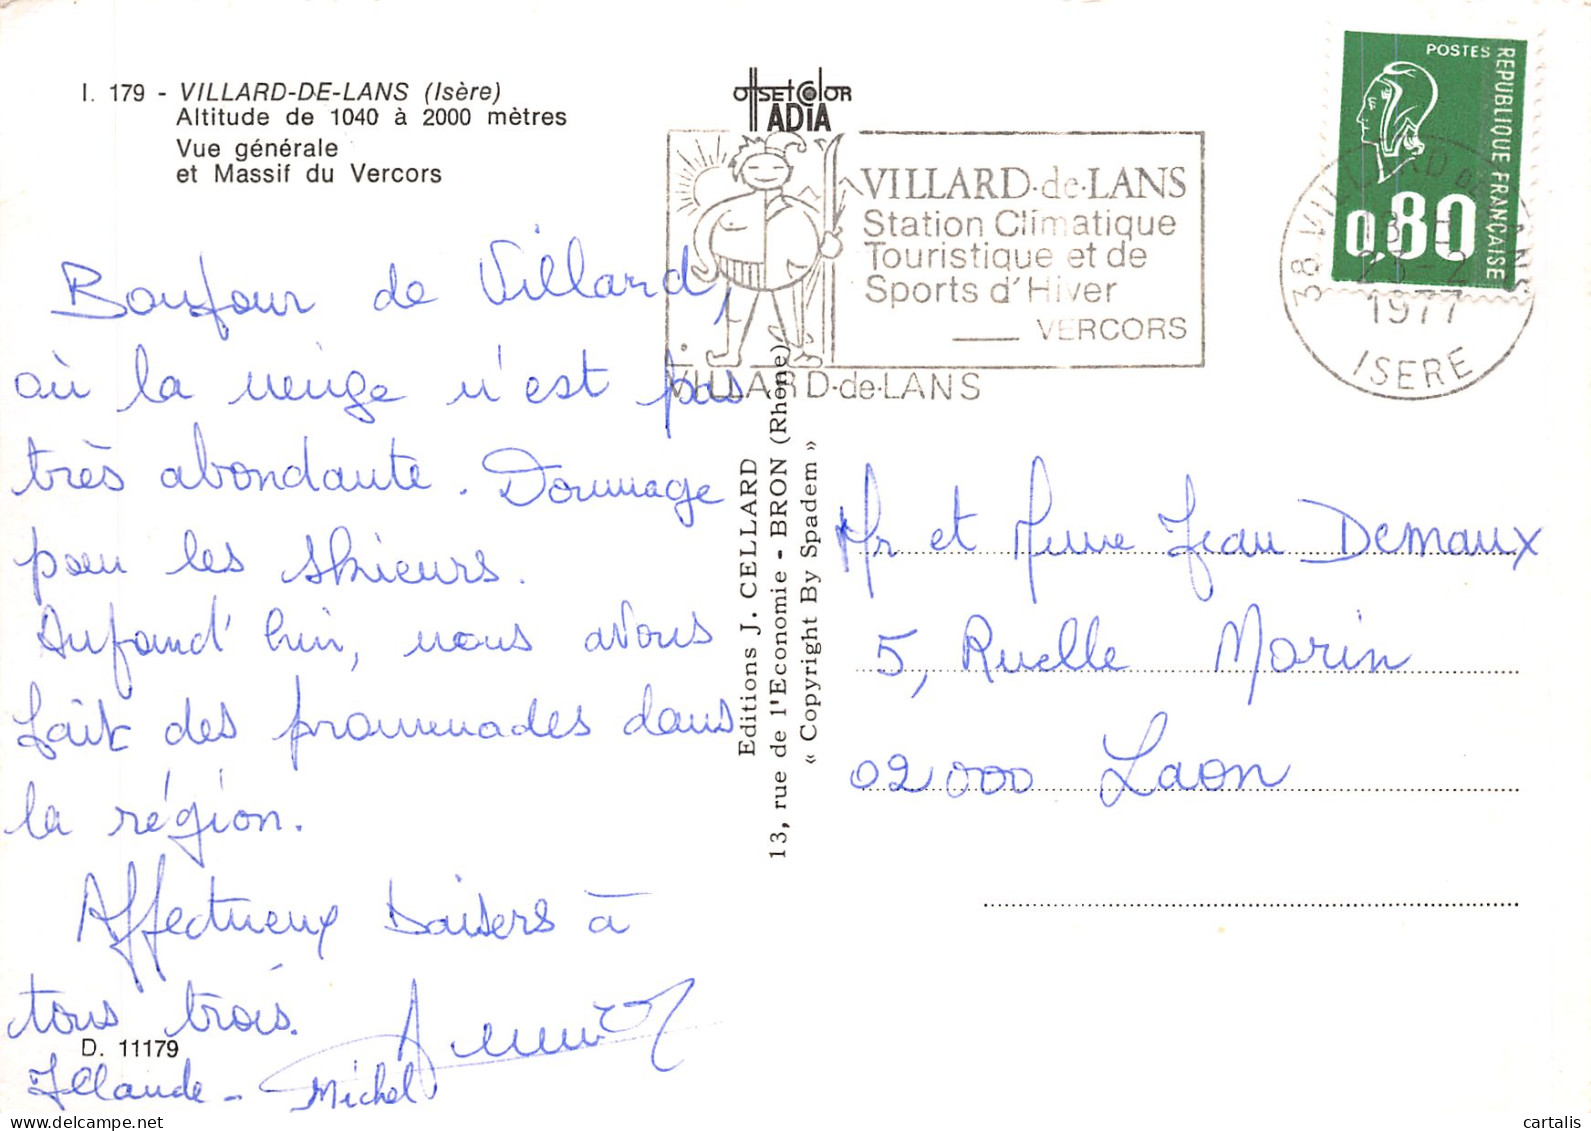 I. 179 - VILLARD-DE-LANS (Isère)
Altitude de 1040 à 2000 mètres
Vue générale
et Massif du Vercors
Bonjour de Villard,
où la neige n'est pas
très abondante. Dommage
pour les skieurs.
Aujourd'hui, nous avons
fait des promenades dans
la région.
Affectueux baisers à
tous trois.
D. 11179
JClaude - Michel
offsetcolor
ADIA
VILLARD-de-LANS
Station Climatique
Touristique et de
Sports d'Hiver
VERCORS
VILLARD-de-LANS
Editions J. CELLARD
13, rue de l'Economie - BRON (Rhône)
« Copyright By Spadem »
POSTES
REPUBLIQUE FRANÇAISE
0,80
38 VILLARD DE LANS
1977
ISERE
Mr et Mme Jean Demaux
5, Ruelle Morin
02000 Laon
cartalis
delcampe.net